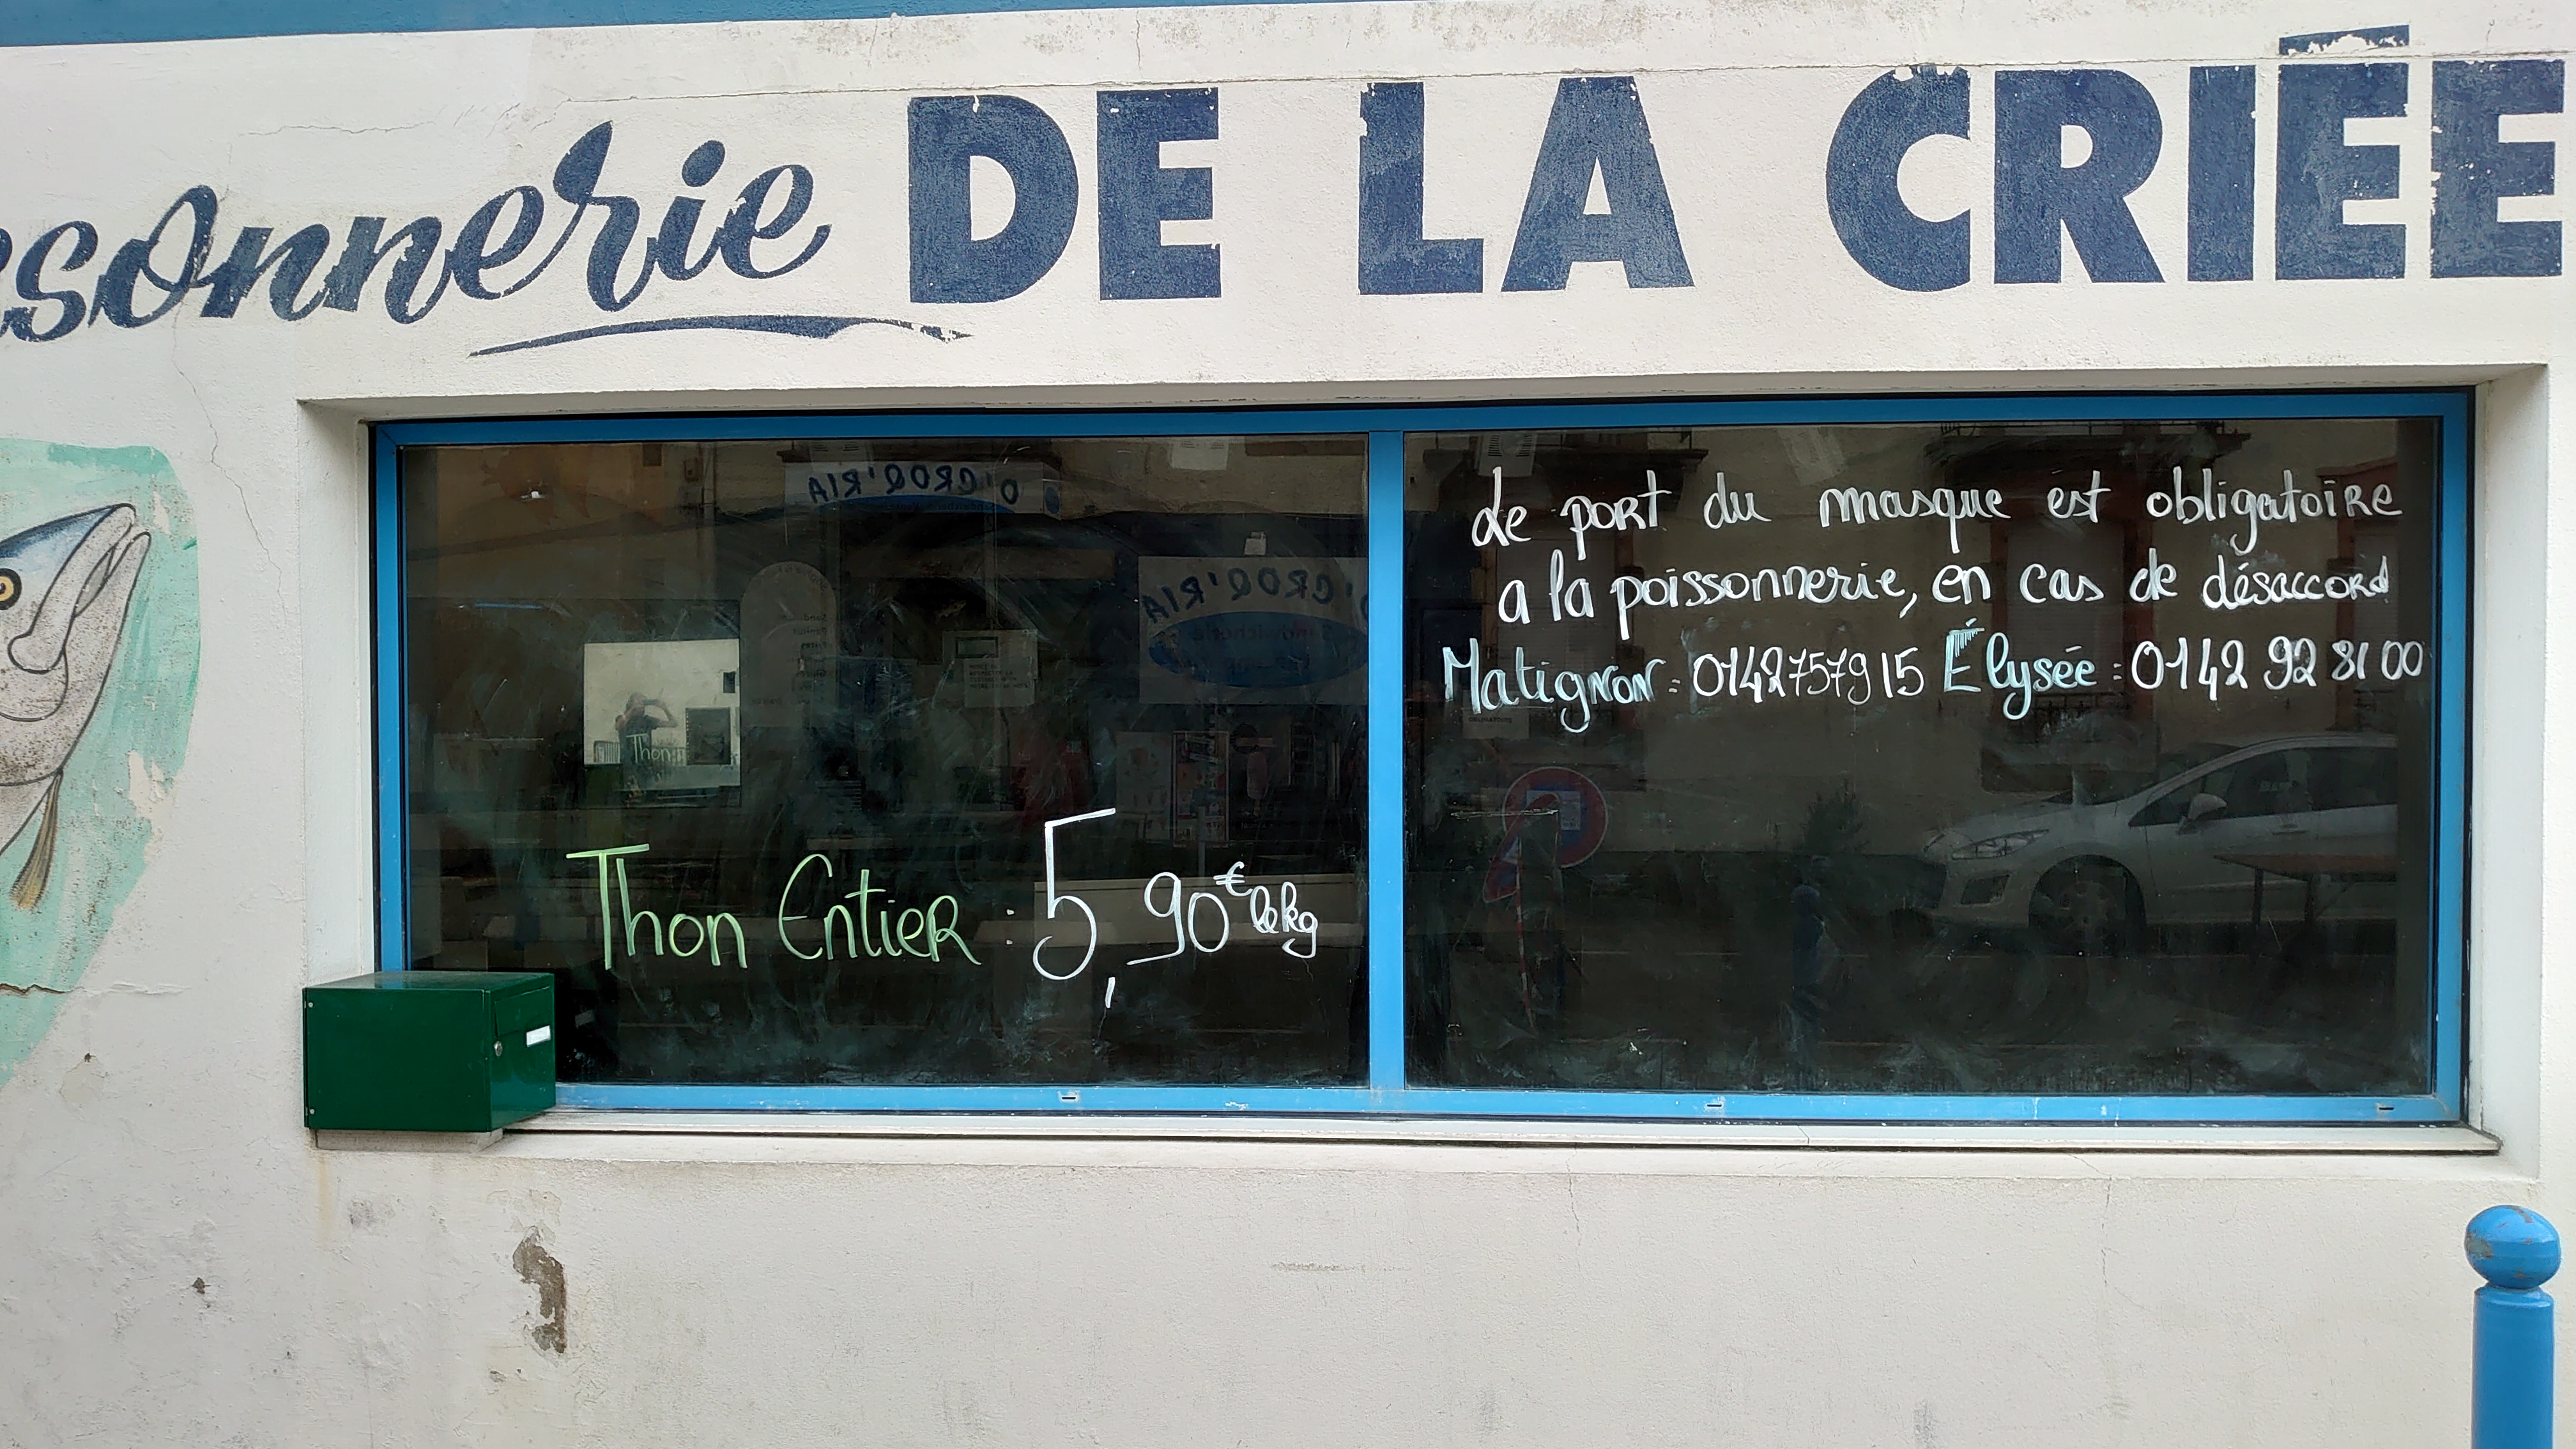 ssonnerie DE LA CRIÉE
O'CROQ'RIA
O'CROQ'RIA
Thon Entier : 5,90€ le kg
Le port du masque est obligatoire
a la poissonnerie, en cas de désaccord
Matignon : 0142757915 Élysée : 0142 92 81 00